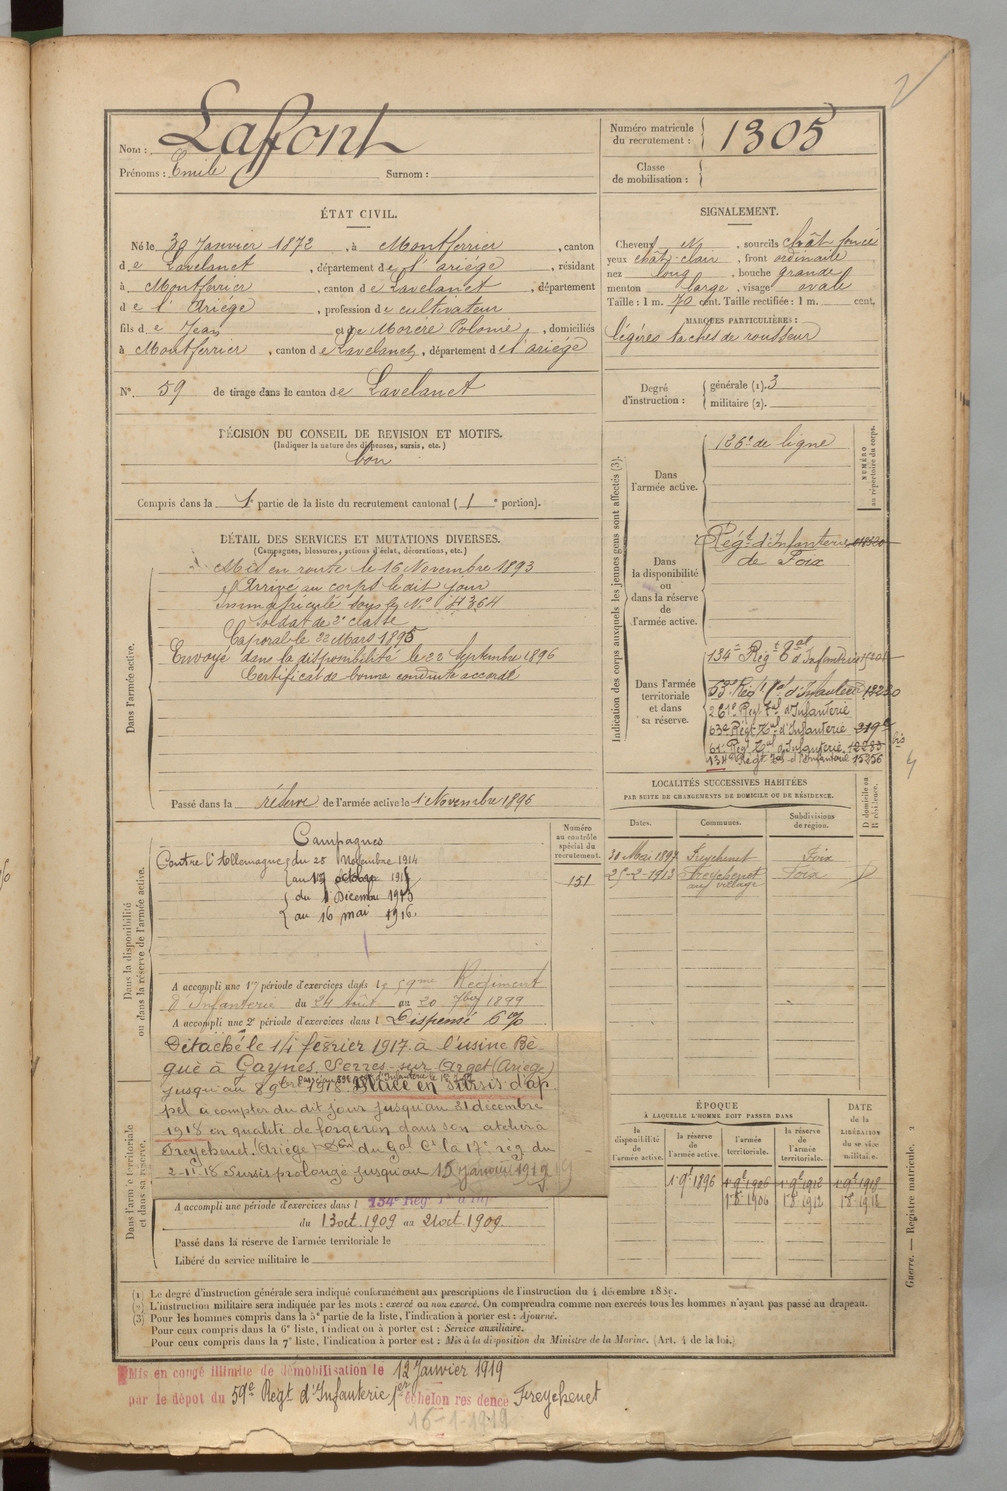 2
Nom : Lafont
Prénoms : Emile Surnom :
Numéro matricule du recrutement : 1305
Classe de mobilisation :
ÉTAT CIVIL.
Né le 30 Janvier 1872, à Montferrier, canton
de Lavelanet, département de l'ariége, résidant
à Montferrier, canton de Lavelanet, département
de l'Ariége, profession de cultivateur
fils de Jean et de Morère Polonie, domiciliés
à Montferrier, canton de Lavelanet, département de l'ariége
N° 59 de tirage dans le canton de Lavelanet
SIGNALEMENT.
Cheveux N, sourcils chât foncé
yeux chât-clair, front ordinaire
nez long, bouche grande
menton large, visage ovale
Taille : 1 m. 70 cent. Taille rectifiée : 1 m. cent.
MARQUES PARTICULIÈRES :
légéres taches de rousseur
Degré d'instruction : générale (1). 3
militaire (2).
DÉCISION DU CONSEIL DE REVISION ET MOTIFS.
(Indiquer la nature des dispenses, sursis, etc.)
bon
Compris dans la 1e partie de la liste du recrutement cantonal (1e portion).
DÉTAIL DES SERVICES ET MUTATIONS DIVERSES.
(Campagnes, blessures, actions d'éclat, décorations, etc.)
Dans l'armée active.
Mis en route le 16 Novembre 1893
Arrivé au corps le dit jour
Immatriculé sous le N° 4364
Soldat de 2e classe
Caporal le 22 Mars 1895
Envoyé dans la disponibilité le 22 Septembre 1896
Certificat de bonne conduite accordé
Passé dans la réserve de l'armée active le 1 Novembre 1896
Indication des corps auxquels les jeunes gens sont affectés (3).
NUMÉRO au répertoire du corps.
Dans l'armée active.
126e de ligne
Dans la disponibilité ou dans la réserve de l'armée active.
Régt d'Infanterie
de Foix
Dans l'armée territoriale et dans sa réserve.
134e Régt Tal d'Infanterie
53e Régt Tal d'Infanterie
261e Régt Tal d'Infanterie
63e Régt Tal d'Infanterie 219
61e Régt Tal d'Infanterie 12283 bis
134e Régt Tal d'Infanterie 15256
4
LOCALITÉS SUCCESSIVES HABITÉES
PAR SUITE DE CHANGEMENTS DE DOMICILE OU DE RÉSIDENCE.
D domicile ou R résidence.
Dates. Communes. Subdivisions de région.
30 Mai 1897 Freychenet Foix
25-2-1913 Freychenet Foix D
au village
Dans la disponibilité ou dans la réserve de l'armée active.
Numéro au contrôle spécial du recrutement.
151
Campagnes
Contre l'Allemagne du 25 Novembre 1914
au 17 octobre 1915
du 1 Décembre 1915
au 16 mai 1916.
A accompli une 1re période d'exercices dans le 59me Régiment
d'Infanterie du 24 Août au 20 7bre 1899
A accompli une 2e période d'exercices dans l Dispensé 6%
Détaché le 14 février 1917 à l'usine Bè
gué à Gaynes Serres-sur Arget (Ariège)
jusqu'au 8 9bre 1918. Placé en sursis d'ap
pel à compter du dit jour jusqu'au 31 décembre
1918 en qualité de forgeron dans son atelier à
Freychenet (Ariège) Don du Gal Ct la 17e rég du
2-11-18 Sursis prolongé jusqu'au 15 janvier 1919
Dans l'armée territoriale et dans sa réserve.
A accompli une période d'exercices dans l 134e Régt
du 13 oct. 1909 au 21 oct. 1909.
Passé dans la réserve de l'armée territoriale le
Libéré du service militaire le
ÉPOQUE
À LAQUELLE L'HOMME DOIT PASSER DANS
la disponibilité de l'armée active.
la réserve de l'armée active.
l'armée territoriale.
la réserve de l'armée territoriale.
DATE de la LIBÉRATION du service militaire.
1 9e 1896 1 9e 1906 1 9e 1912 1 9e 1918
1 8 1906 1 8 1912 1 8 1918
(1) Le degré d'instruction générale sera indiqué conformément aux prescriptions de l'instruction du 4 décembre 1889.
(2) L'instruction militaire sera indiquée par les mots : exercé ou non exercé. On comprendra comme non exercés tous les hommes n'ayant pas passé au drapeau.
(3) Pour les hommes compris dans la 5e partie de la liste, l'indication à porter est : Ajourné.
Pour ceux compris dans la 6e liste, l'indication à porter est : Service auxiliaire.
Pour ceux compris dans la 7e liste, l'indication à porter est : Mis à la disposition du Ministre de la Marine. (Art. 4 de la loi.)
Guerre. — Registre matricule. 2
Mis en congé illimité de démobilisation le 12 Janvier 1919
par le dépot du 59e Régt d'Infanterie 1er échelon résidence Freychenet
16-1-1919